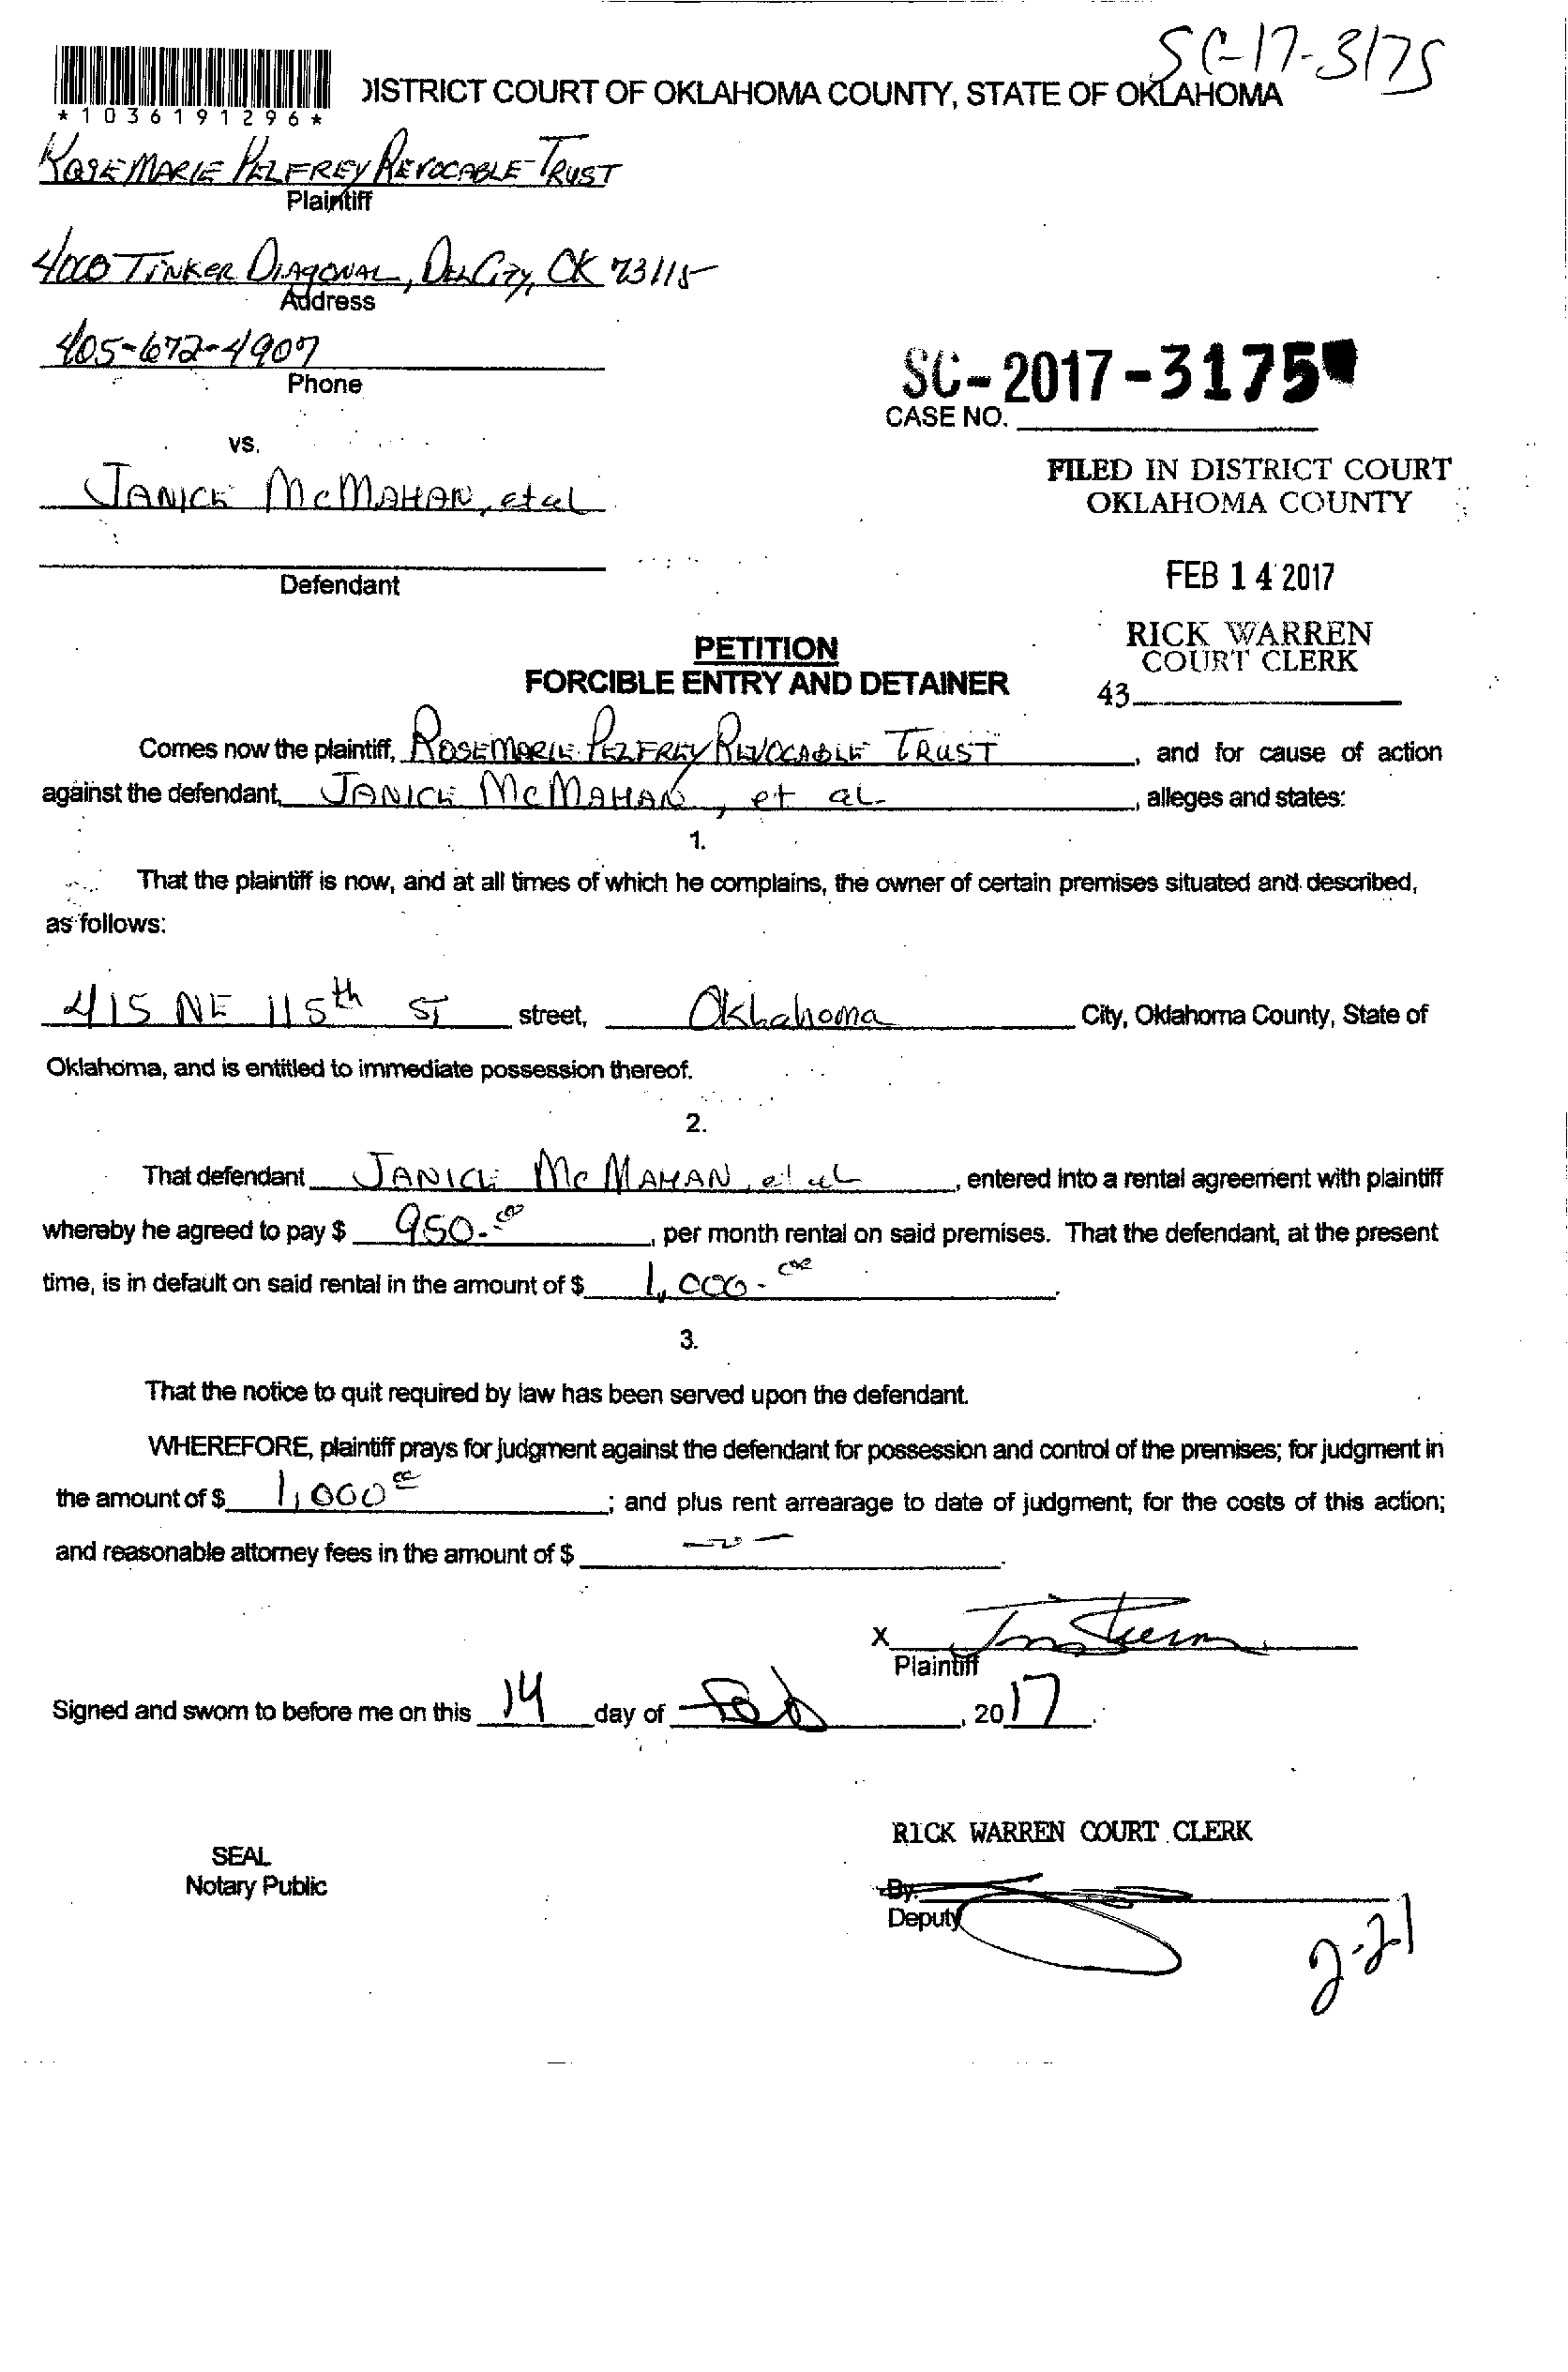 SC-17-3175
DISTRICT COURT OF OKLAHOMA COUNTY, STATE OF OKLAHOMA
*1036191296*
ROSEMARIE PELFREY REVOCABLE TRUST
Plaintiff
4000 TINKER DIAGONAL, DEL CITY, OK 73115
Address
405-672-4907
Phone
SC-2017-3175
CASE NO.
vs.
JANICE McMAHAN, et al
FILED IN DISTRICT COURT
OKLAHOMA COUNTY
Defendant
FEB 14 2017
PETITION
FORCIBLE ENTRY AND DETAINER
RICK WARREN
COURT CLERK
43
Comes now the plaintiff, ROSEMARIE PELFREY REVOCABLE TRUST, and for cause of action
against the defendant, JANICE McMAHAN, et al, alleges and states:
1.
That the plaintiff is now, and at all times of which he complains, the owner of certain premises situated and described,
as follows:
415 NE 115th ST street, Oklahoma City, Oklahoma County, State of
Oklahoma, and is entitled to immediate possession thereof.
2.
That defendant JANICE McMAHAN, et al, entered into a rental agreement with plaintiff
whereby he agreed to pay $ 950.00, per month rental on said premises. That the defendant, at the present
time, is in default on said rental in the amount of $ 1,000.00.
3.
That the notice to quit required by law has been served upon the defendant.
WHEREFORE, plaintiff prays for judgment against the defendant for possession and control of the premises; for judgment in
the amount of $ 1,000 00; and plus rent arrearage to date of judgment; for the costs of this action;
and reasonable attorney fees in the amount of $ -0-.
X
Plaintiff
Signed and sworn to before me on this 14 day of Feb, 2017.
RICK WARREN COURT CLERK
SEAL
Notary Public
By:
Deputy
2-21